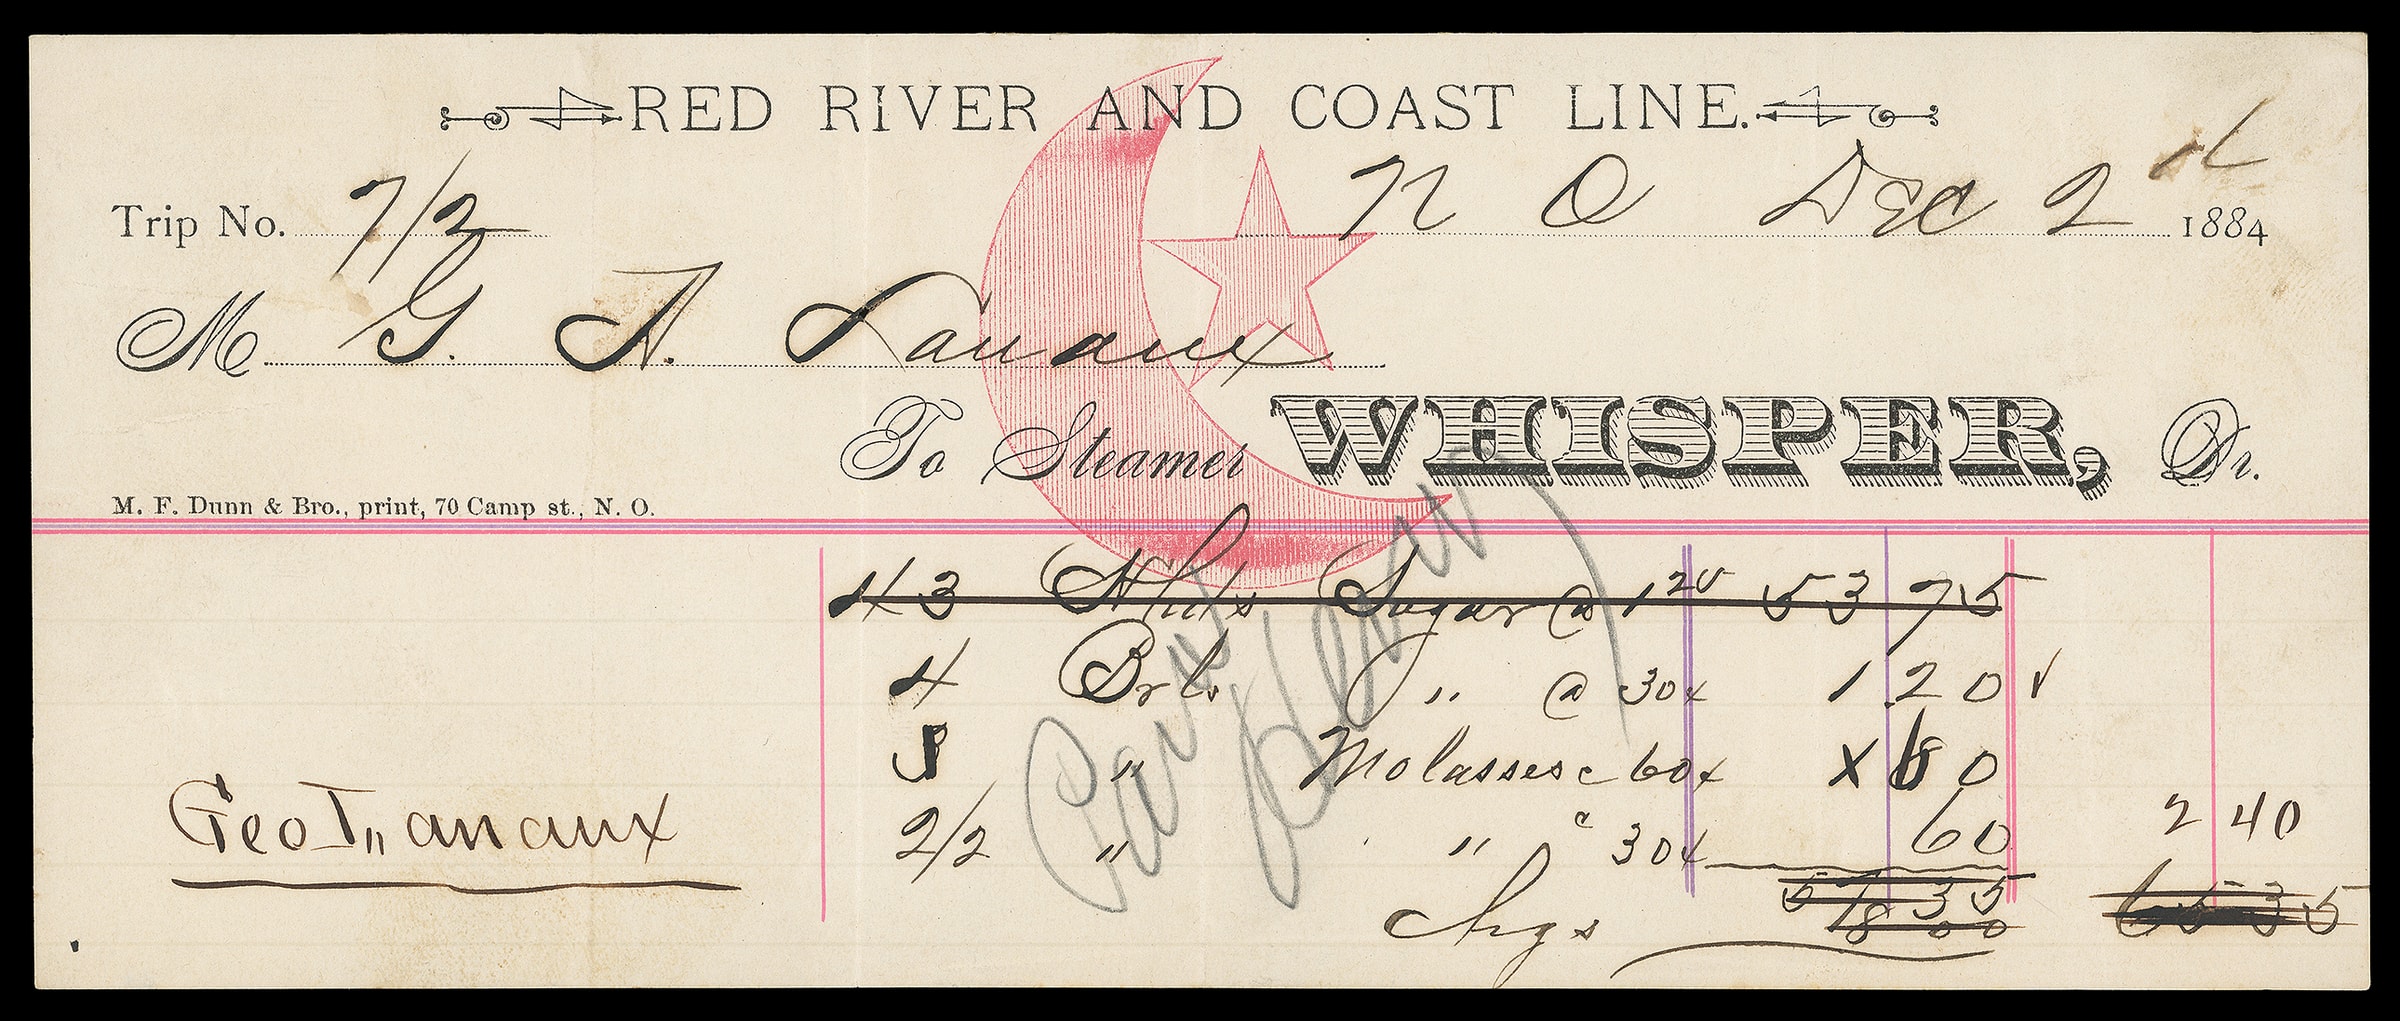 RED RIVER AND COAST LINE.
Trip No. 7/2 N O Dec 2 1884
M G. A. Lanaux
To Steamer WHISPER, Dr.
M. F. Dunn & Bro., print, 70 Camp st., N. O.
43 Hhds Sugar @ 1 25 53 75
4 Brls " @ 30 1.20
" Molasses 60 60
2/2 " " 30 60
2 40
Geo Lanaux
57 35
Chgs 8 00
65 35